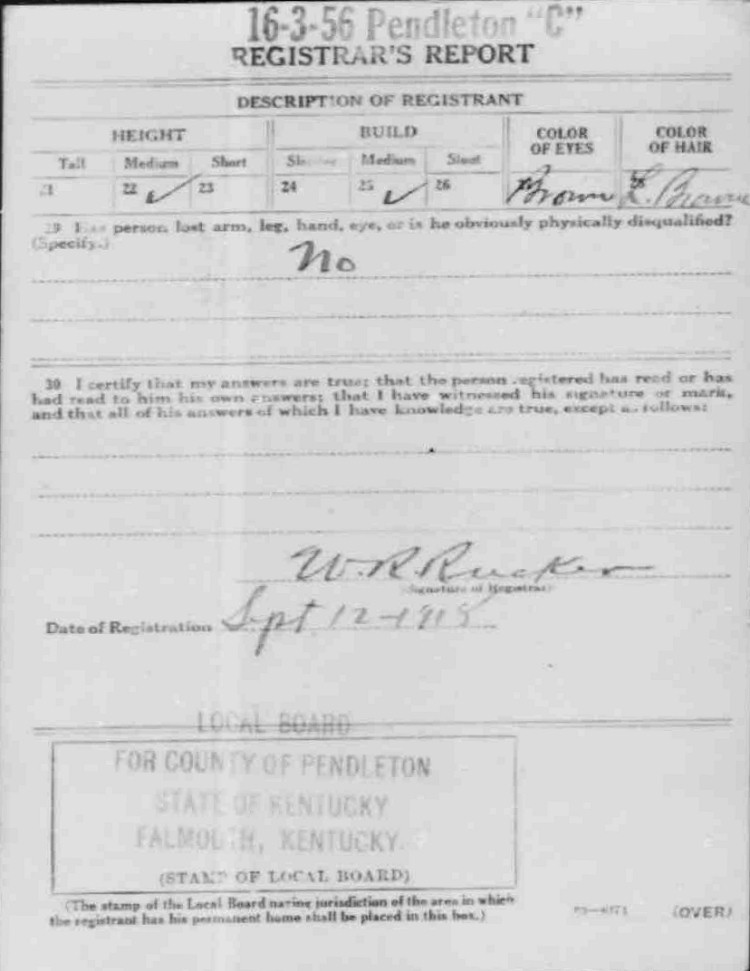 16-3-56 Pendleton "C"
REGISTRAR'S REPORT
DESCRIPTION OF REGISTRANT
HEIGHT BUILD COLOR OF EYES COLOR OF HAIR
Tall Medium Short Slender Medium Stout
21 22 ✓ 23 24 25 ✓ 26 27 Brown 28 L. Brown
29 Has person lost arm, leg, hand, eye, or is he obviously physically disqualified?
(Specify.)
No
30 I certify that my answers are true; that the person registered has read or has
had read to him his own answers; that I have witnessed his signature or mark,
and that all of his answers of which I have knowledge are true, except as follows:
W. R. Rucker
(Signature of Registrar)
Date of Registration Sept 12-1918
LOCAL BOARD
FOR COUNTY OF PENDLETON
STATE OF KENTUCKY
FALMOUTH, KENTUCKY.
(STAMP OF LOCAL BOARD)
(The stamp of the Local Board having jurisdiction of the area in which
the registrant has his permanent home shall be placed in this box.)
(OVER)